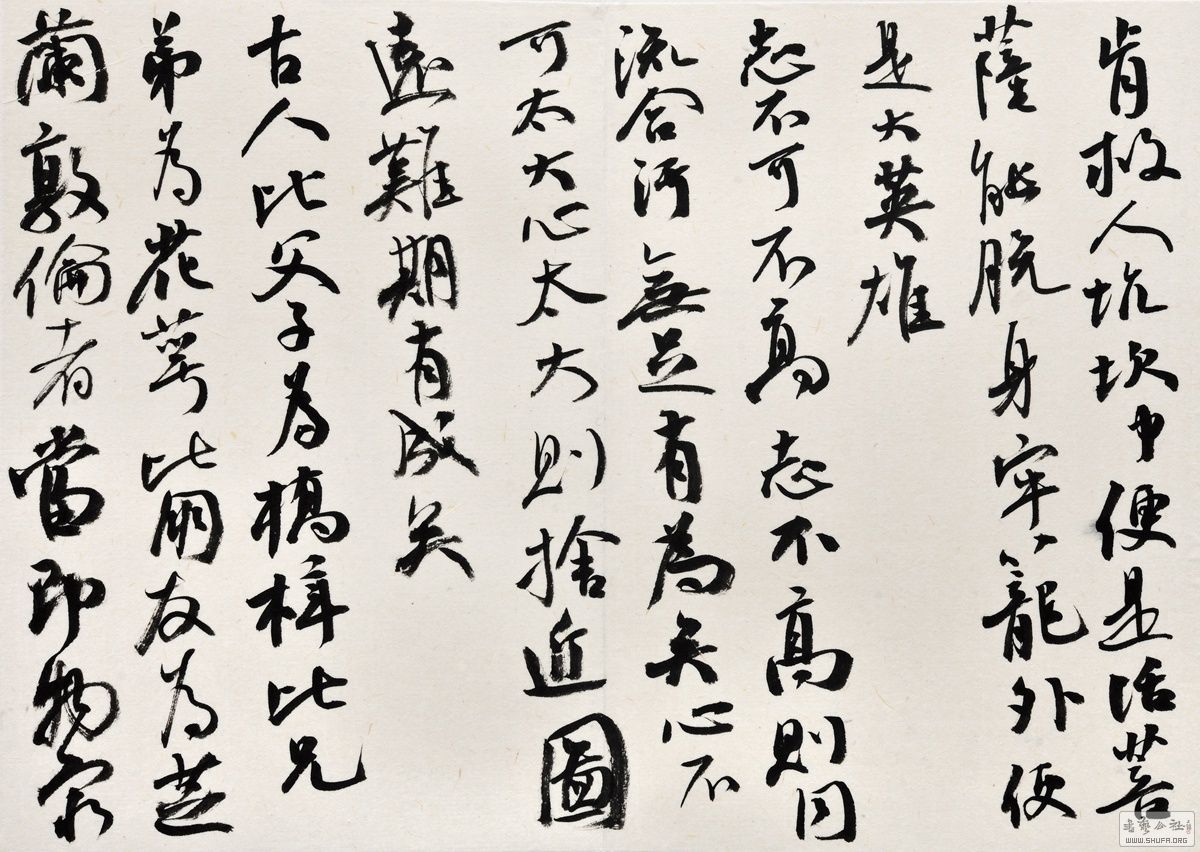 肯救人坑坎中便是活菩
薩能脫身牢籠外便
是大英雄
志不可不高志不高則同
流合污無足有為矣心不
可太大心太大則捨近圖
遠難期有成矣
古人比父子為橋梓比兄
弟為花萼比朋友為芝
蘭敦倫者當即物窮
書藝公社
WWW.SHUFA.ORG